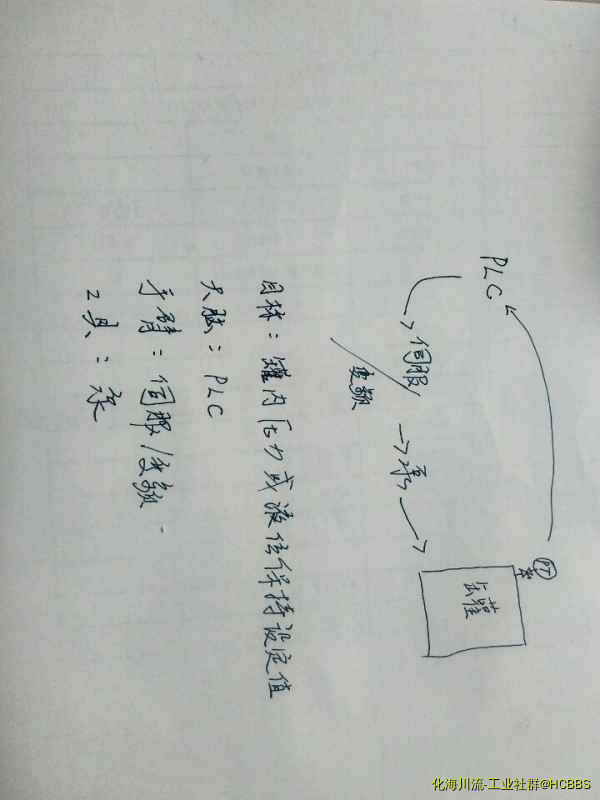 PLC
伺服
变频
泵
PT
贮罐
目标：罐内压力或液位保持设定值
大脑：PLC
手臂：伺服/变频
工具：泵
化海川流-工业社群@HCBBS